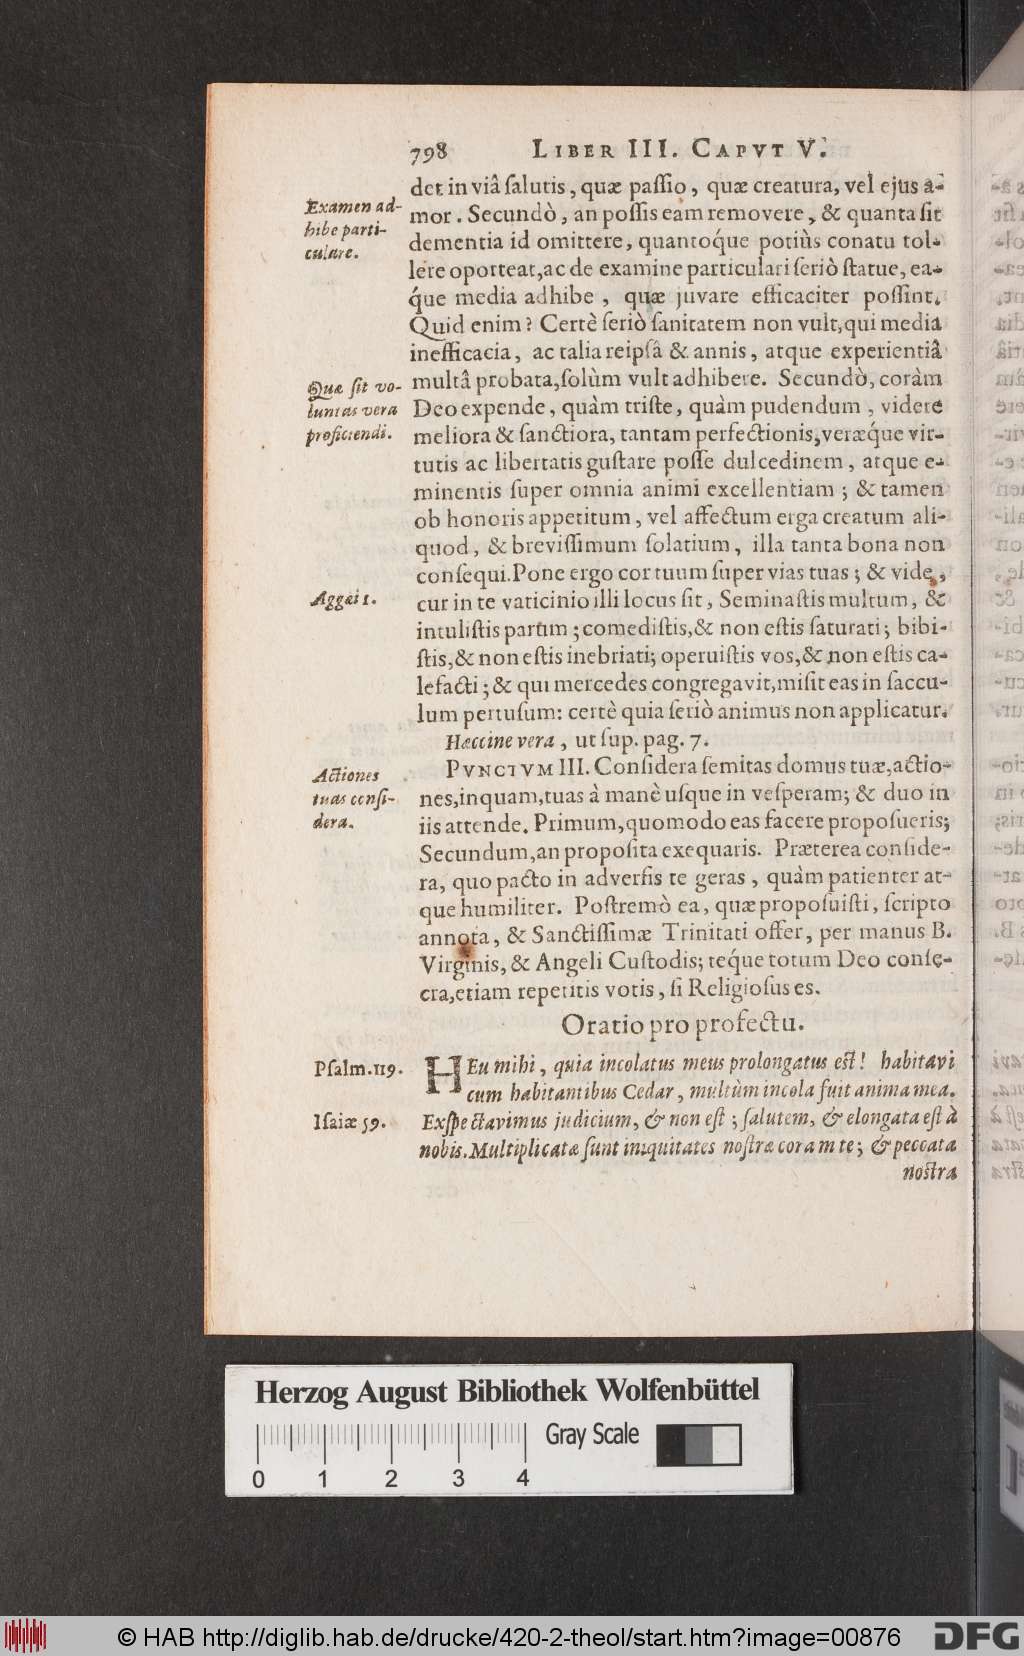 798 LIBER III. CAPVT V.
det in viâ ſalutis, quæ paſſio, quæ creatura, vel ejus a-
Examen ad-
hibe parti-
culare.
mor. Secundò, an poſſis eam removere, & quanta ſit
dementia id omittere, quantoq́ue potiùs conatu tol-
lere oporteat, ac de examine particulari ſeriò ſtatue, ea-
q́ue media adhibe, quæ juvare efficaciter poſſint.
Quid enim? Certè ſeriò ſanitatem non vult, qui media
inefficacia, ac talia reipſâ & annis, atque experientiâ
Quæ ſit vo-
luntas vera
proficiendi.
multâ probata, ſolùm vult adhibere. Secundò, coràm
Deo expende, quàm triſte, quàm pudendum, videre
meliora & ſanctiora, tantam perfectionis, veræq́ue vir-
tutis ac libertatis guſtare poſſe dulcedinem, atque e-
minentis ſuper omnia animi excellentiam; & tamen
ob honoris appetitum, vel affectum erga creatum ali-
quod, & breviſſimum ſolatium, illa tanta bona non
conſequi. Pone ergo cor tuum ſuper vias tuas; & vide,
Aggæi 1.
cur in te vaticinio illi locus ſit, Seminaſtis multum, &
intuliſtis parum; comediſtis, & non eſtis ſaturati; bibi-
ſtis, & non eſtis inebriati; operuiſtis vos, & non eſtis ca-
lefacti; & qui mercedes congregavit, miſit eas in ſaccu-
lum pertuſum: certè quia ſeriò animus non applicatur.
Hæccine vera, ut ſup. pag. 7.
PVNCTVM III. Conſidera ſemitas domus tuæ, actio-
Actiones
tuas conſi-
dera.
nes, inquam, tuas à manè uſque in veſperam; & duo in
iis attende. Primum, quomodo eas facere propoſueris;
Secundum, an propoſita exequaris. Præterea conſide-
ra, quo pacto in adverſis te geras, quàm patienter at-
que humiliter. Poſtremò ea, quæ propoſuiſti, ſcripto
annota, & Sanctiſſimæ Trinitati offer, per manus B.
Virginis, & Angeli Cuſtodis; teq́ue totum Deo conſe-
cra, etiam repetitis votis, ſi Religioſus es.
Oratio pro profectu.
Pſalm. 119.
HEu mihi, quia incolatus meus prolongatus eſt! habitavi
cum habitantibus Cedar, multùm incola fuit anima mea.
Iſaiæ 59.
Exſpectavimus judicium, & non eſt; ſalutem, & elongata eſt à
nobis. Multiplicatæ ſunt iniquitates noſtræ coram te; & peccata
noſtra
Herzog August Bibliothek Wolfenbüttel
Gray Scale
0 1 2 3 4
© HAB http://diglib.hab.de/drucke/420-2-theol/start.htm?image=00876
DFG